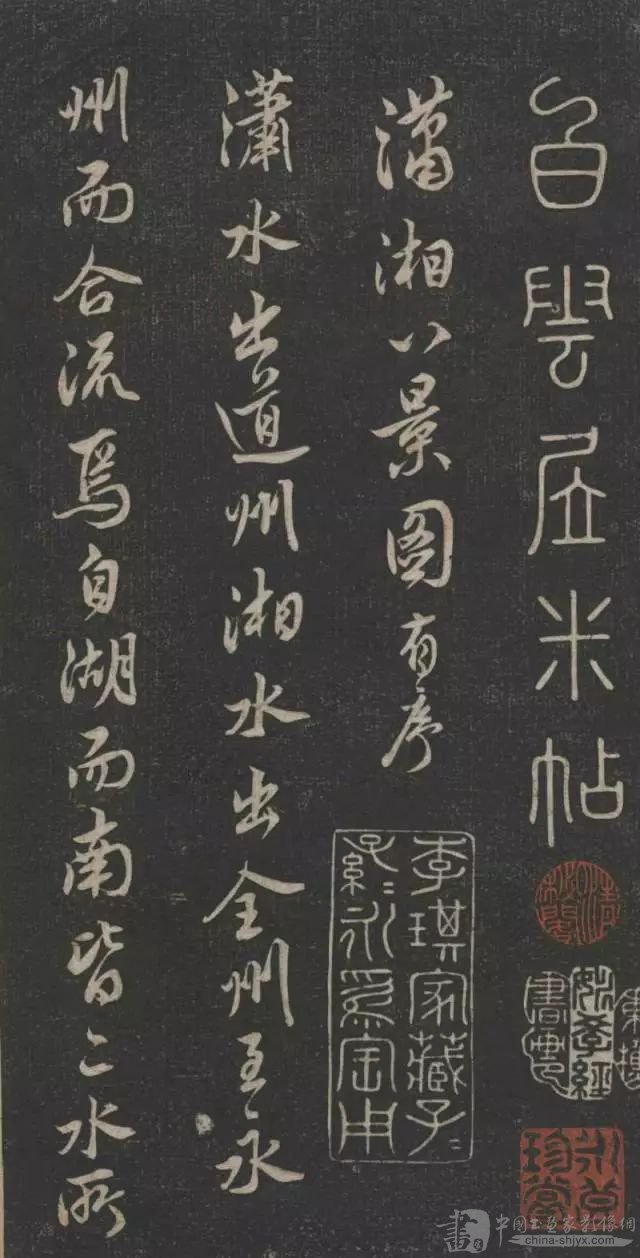 白雲居米帖
瀟湘八景圖有序
瀟水出道州湘水出全州至永
州而合流焉自湖而南皆二水所
李琪家藏子〻
孫〻永為寶用
中國書畫家影像網
china-shjyx.com